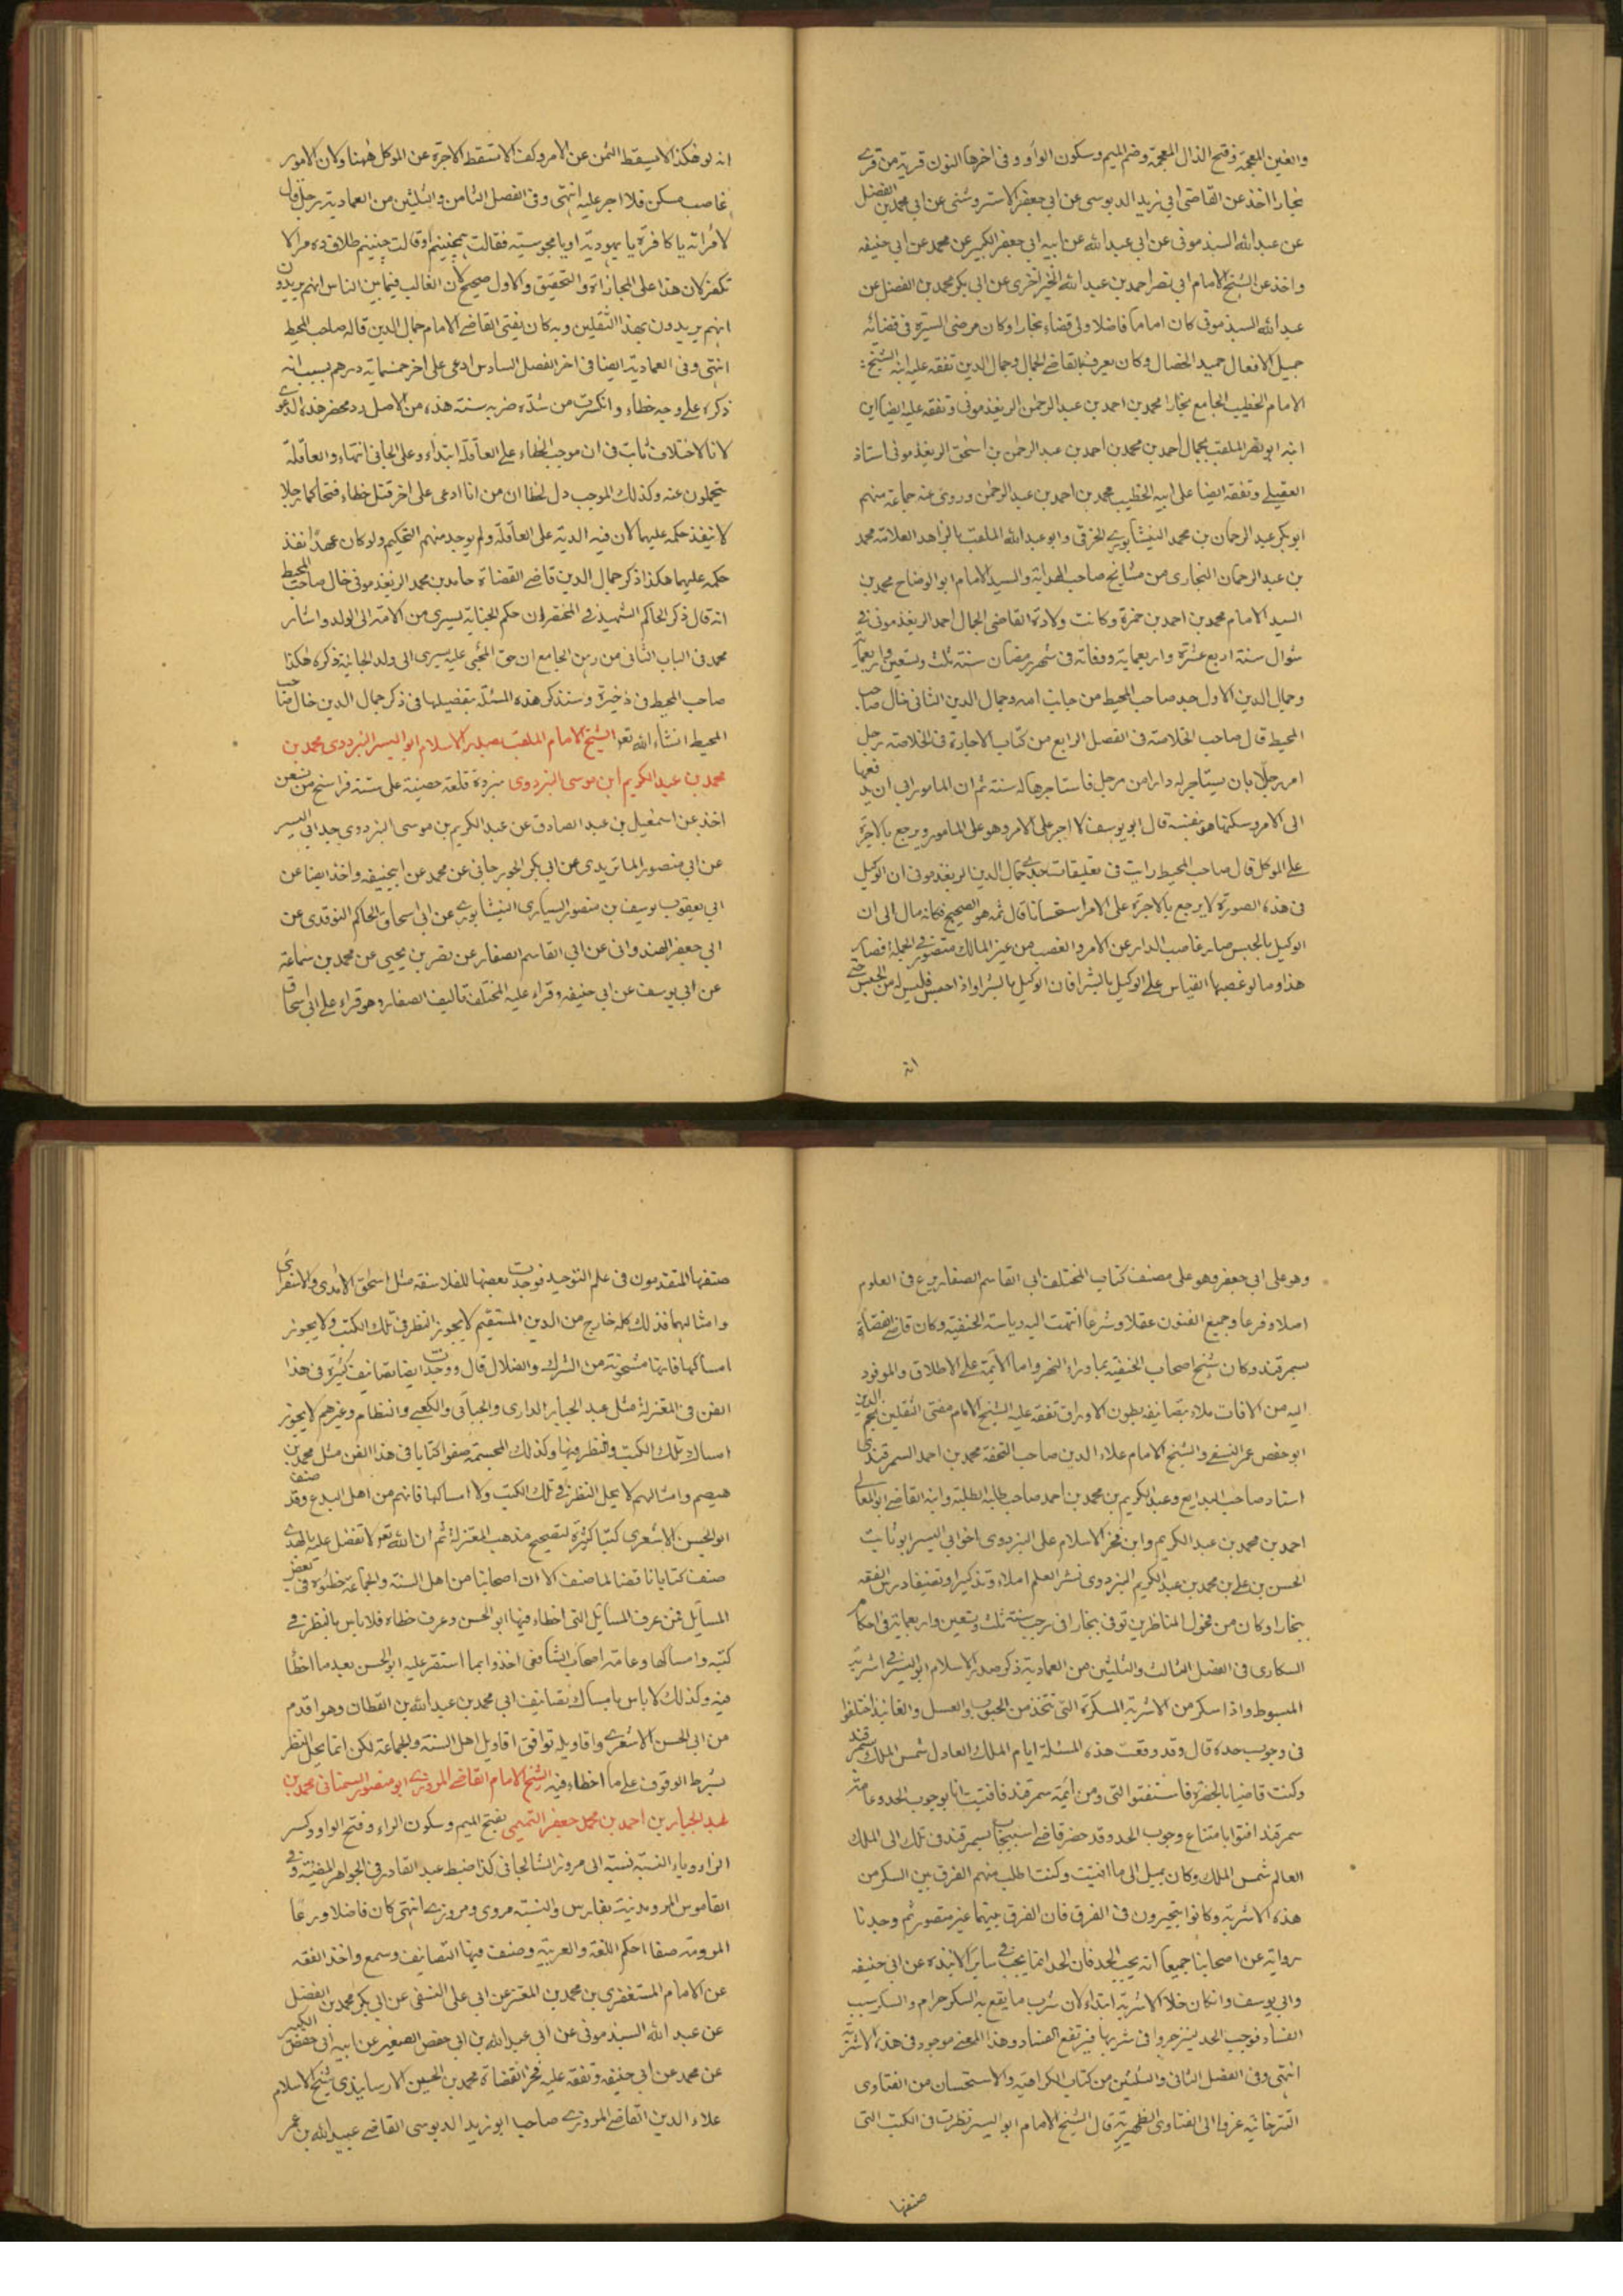 والغين المعجمة وفتح الذال المعجمة وضم الميم وسكون الواو وفى اخرها النون قرية من قرى
بخارا اخذ عن القاضى ابى زيد الدبوسى عن ابى جعفر الاستروشنى عن ابى محمد بن الفضل
عن عبد الله السبذمونى عن ابى عبد الله عن ابيه ابى حفص الكبير عن محمد عن ابى حنيفه
واخذ عن الشيخ الامام ابى نصر احمد بن عبد الله الخيزاخزى عن ابى بكر محمد بن الفضل عن
عبد الله السبذمونى كان اماما فاضلا ولى قضاء بخارا وكان مرضى السيرة فى قضائه
جميل الافعال حميد الخصال وكان يعرف بالقاضى الجمال وجمال الدين تفقه عليه ابنه الشيخ
الامام الخطيب الجامع بخارا محمد بن احمد بن عبد الرحمن الريغذمونى وتفقه عليه ايضا ابن
ابنه ابو نصر الملقب بجمال احمد بن محمد بن احمد بن عبد الرحمن بن اسحق الريغذمونى استاذ
العقيلى وتفقه ايضا على ابيه الخطيب محمد بن احمد بن عبد الرحمن وروى عنه جماعة منهم
ابو بكر عبد الرحمان بن محمد النيشابورى الخرقى وابو عبد الله الملقب بالزاهد العلامة محمد
بن عبد الرحمان البخارى من مشايخ صاحب الهداية والسيد الامام ابو الوضاح محمد بن
السيد الامام محمد بن احمد بن حمزة وكانت ولادة القاضى الجمال احمد الريغذمونى فى
شوال سنة اربع عشرة واربعماية ووفاته فى شهر رمضان سنة ثلث وتسعين واربعماية
وجمال الدين الاول جد صاحب المحيط من جانب امه وجمال الدين الثانى خال صاحب
المحيط قال صاحب الخلاصة فى الفصل الرابع من كتاب الاجارة فى الخلاصة رجل
امر رجلا بان يستاجر له دارا من رجل فاستاجرها له سنة ثم ان المامور ابى ان يدفعها
الى الامر وسكنها هو بنفسه قال ابو يوسف لا اجر على الامر وهو على المامور ويرجع بالاجرة
على الموكل قال صاحب المحيط رايت فى تعليقات جدى جمال الدين الريغذمونى ان الوكيل
فى هذه الصورة لا يرجع بالاجرة على الامر استحسانا قال ثمه هو الصحيح فكانه مال الى ان
الوكيل بالحبس صار غاصب الدار عن الامر والغصب من غير المالك متصور فى الجملة فصار
هذا وما لو غصبها القياس على الوكيل بالشرا فان الوكيل بالشرا واذا احبس فليس له من الحبس حتى
انه
انه لو هكذا لا يسقط الثمن عن الامر وكف لا تسقط الاجرة عن الموكل ههنا ولان الامور
غاصب مسكن فلا اجر عليه انتهى وفى الفصل الثامن والثلثين من العمادية رجل قال
لامراته يا كافرة يا يهودية او يا مجوسية فقالت همچنينم او قالت چنينم طلاق ده مرا لا
تكفر لان هذا على المجازاة والتحقيق والاول صحيح لان الغالب فيما بين الناس انهم يريدون
انهم يريدون بهذا الثقلين وبه كان يفتى القاضى الامام جمال الدين قاله صاحب المحيط
انتهى وفى العمادية ايضا فى اخر الفصل السادس ادعى على اخر خمسماية درهم بسبب انه
ذكره على وجه خطاء وانكسرت من شدة ضربه سنة هذه من الاصل ردمحضر هذه الدعوى
لان الاختلاف ثابت فى ان موجب الخطاء على العاقلة ابتداء وعلى الجانى انتهاء والعاقلة
يتحملون عنه وكذلك الموجب دل لخطا ان من انا ادعى على اخر قتل خطاء فتحاكما رجلا
لا ينفذ حكمه عليهما لان فيه الدية على العاقلة ولم يوجد منهم التحكيم ولو كان عمدا نفذ
حكمه عليهما هكذا ذكر جمال الدين قاضى القضاة حامد بن محمد الريغذمونى خال صاحب المحيط
انه قال ذكر الحاكم الشهيد فى المختصر ان حكم الجناية يسرى من الامة الى الولد واشار
محمد فى الباب الثانى من رهن الجامع ان حق المجنى عليه يسرى الى ولد الجانية ذكره هكذا
صاحب المحيط فى ذخيرة وسنذكر هذه المسئلة بتفصيلها فى ذكر جمال الدين خال صاحب
المحيط انشاء الله تعالى الشيخ الامام الملقب بصدر الاسلام ابو اليسر البزدوى محمد بن
محمد بن عبد الكريم ابن موسى البزدوى منزدة قلعة حصينة على ستة فراسخ من نسف
اخذ عن اسمعيل بن عبد الصادق عن عبد الكريم بن موسى البزدوى جد ابى اليسر
عن ابى منصور الماتريدى عن ابى بكر الجورجانى عن محمد عن ابى حنيفه واخذ ايضا عن
ابى يعقوب يوسف بن منصور السيارى النيشابورى عن ابى اسحاق الحاكم النوقدى عن
ابى جعفر الهندوانى عن ابى القاسم الصفار عن نصر بن يحيى عن محمد بن سماعة
عن ابى يوسف عن ابى حنيفه وقراء عليه المختلف تاليف الصفار وهو قراء على ابى اسحاق
وهو على ابى جعفر وهو على مصنف كتاب المختلف ابى القاسم الصفار برع فى العلوم
اصلا وفرعا وجميع الفنون عقلا وشرعا انتهت اليه رياسة الحنفية وكان قاضى القضاة
بسمرقند وكان شيخ اصحاب الحنفية بما وراء النهر واما الائمة على الاطلاق والموفود
اليه من الافات ملاء بتصانيفه بطون الاوراق تفقه عليه الشيخ الامام مفتى الثقلين نجم الدين
ابو حفص عمر النسفى والشيخ الامام علاء الدين صاحب التحفة محمد بن احمد السمرقندى
استاد صاحب البدايع وعبد الكريم بن محمد بن احمد صاحب طلبة الطلبة وابنه القاضى ابو المعالى
احمد بن محمد بن عبد الكريم وابن فخر الاسلام على البزدوى اخو ابى اليسر ابو ثابت
الحسن بن على بن محمد بن عبد الكريم البزدوى نشر العلم املاء وتذكيرا وتصنيفا درس الفقه
ببخارا وكان من فحول المناظرين توفى ببخارا فى رجب سنة ثلث وتسعين واربعماية فى احكام
السكارى فى الفصل الثالث والثلثين من العمادية ذكر صدر الاسلام ابو اليسر فى اشربة
المبسوط واذا سكر من الاشربة المسكرة التى تتخذ من الحبوب والعسل والفانيذ اختلفوا
فى وجوب حده قال وقد وقعت هذه المسئلة ايام الملك العادل شمس الملك بسمرقند
وكنت قاضيا بالحضرة فاستفتوا التى ومن ائمة سمرقند فافتيت انا بوجوب الحد وعامة
سمرقند افتوا بامتناع وجوب الحد وقد حضر قاضى اسبيجاب بسمرقند فى تلك الى الملك
العالم شمس الملك وكان يميل الى ما افتيت وكنت اطلب منهم الفرق بين السكر من
هذه الاشربة وكانوا يتحيرون فى الفرق فان الفرق بينهما غير متصور ثم وجدنا
رواية عن اصحابنا جميعا انه يجب الحد فان الحد انما يجب فى ساير الانبذة عن ابى حنيفه
وابى يوسف وانكان حلالا الاشربة ابتداء لان شرب ما يقع به السكر حرام والسكر سبب
الفساد فوجب الحد لينزجروا فى شربها فيرتفع الفساد وهذا المعنى موجود فى هذه الاشربة
انتهى وفى الفصل الثانى والثلثين من كتاب الكراهية والاستحسان من الفتاوى
التترخانيه عزوا الى الفتاوى الظهيرية قال الشيخ الامام ابو اليسر نظرت فى الكتب التى
صنفها
صنفها المتقدمون فى علم التوحيد فوجدت بعضها للفلاسفة مثل اسحق الكندى والاسفزارى
وامثالهما فذلك كله خارج من الدين المستقيم لا يجوز النظر فى تلك الكتب ولا يجوز
امساكها فانها مشحونة من الشرك والضلال قال ووجدت ايضا تصانيف كثيرة فى هذا
الفن فى المعتزلة مثل عبد الجبار الدارى والجبائى والكعبى والنظام وغيرهم لا يجوز
امساك تلك الكتب والنظر فيها وكذلك المجسمة صنفوا كتابا فى هذا الفن مثل محمد بن
هيصم وامثالهم لا يحل النظر فى تلك الكتب ولا امساكها فانهم من اهل البدع وقد صنف
ابو الحسن الاشعرى كتبا كثيرة لتصحيح مذهب المعتزلة ثم ان الله تعالى تفضل عليه بالهدى
صنف كتابا ناقضا لما صنف الا ان اصحابنا من اهل السنة والجماعة خطئوه فى بعض
المسايل فمن عرف المسايل التى اخطاء فيها ابو الحسن وعرف خطاه فلا باس بالنظر فى
كتبه وامساكها وعامة اصحاب الشافعى اخذوا بما استقر عليه ابو الحسن بعد ما اخطا
فيه وكذلك لا باس بامساك تصانيف ابى محمد بن عبد الله بن القطان وهو اقدم
من ابى الحسن الاشعرى واقاويله توافق اقاويل اهل السنة والجماعة لكن انما يحل النظر
بشرط الوقوف على ما اخطاء فيه الشيخ الامام القاضى المروزى ابو منصور السمعانى محمد بن
عبد الجبار بن احمد بن محمد جعفر التميمى بفتح الميم وسكون الراء وفتح الواو وكسر
الزاء وياء النسبة نسبة الى مرو الشاهجانى كذا ضبط عبد القادر فى الجواهر المضية وفى
القاموس المرو مدينة بفارس والنسبة مروى ومروزى انتهى كان فاضلا ورعا
احكم اللغة والعربية وصنف فيها التصانيف وسمع واخذ الفقه
عن الامام المستغفرى بن محمد بن المعتز عن ابى على النسفى عن ابى بكر محمد بن الفضل
عن عبد الله السبذمونى عن ابى عبد الله بن ابى حفص الصغير عن ابيه ابى حفص الكبير
عن محمد عن ابى حنيفه وتفقه عليه فخر القضاة محمد بن الحسين الارسابندى شيخ الاسلام
علاء الدين القاضى المروزى صاحبا ابو زيد الدبوسى القاضى عبيد الله بن عمر